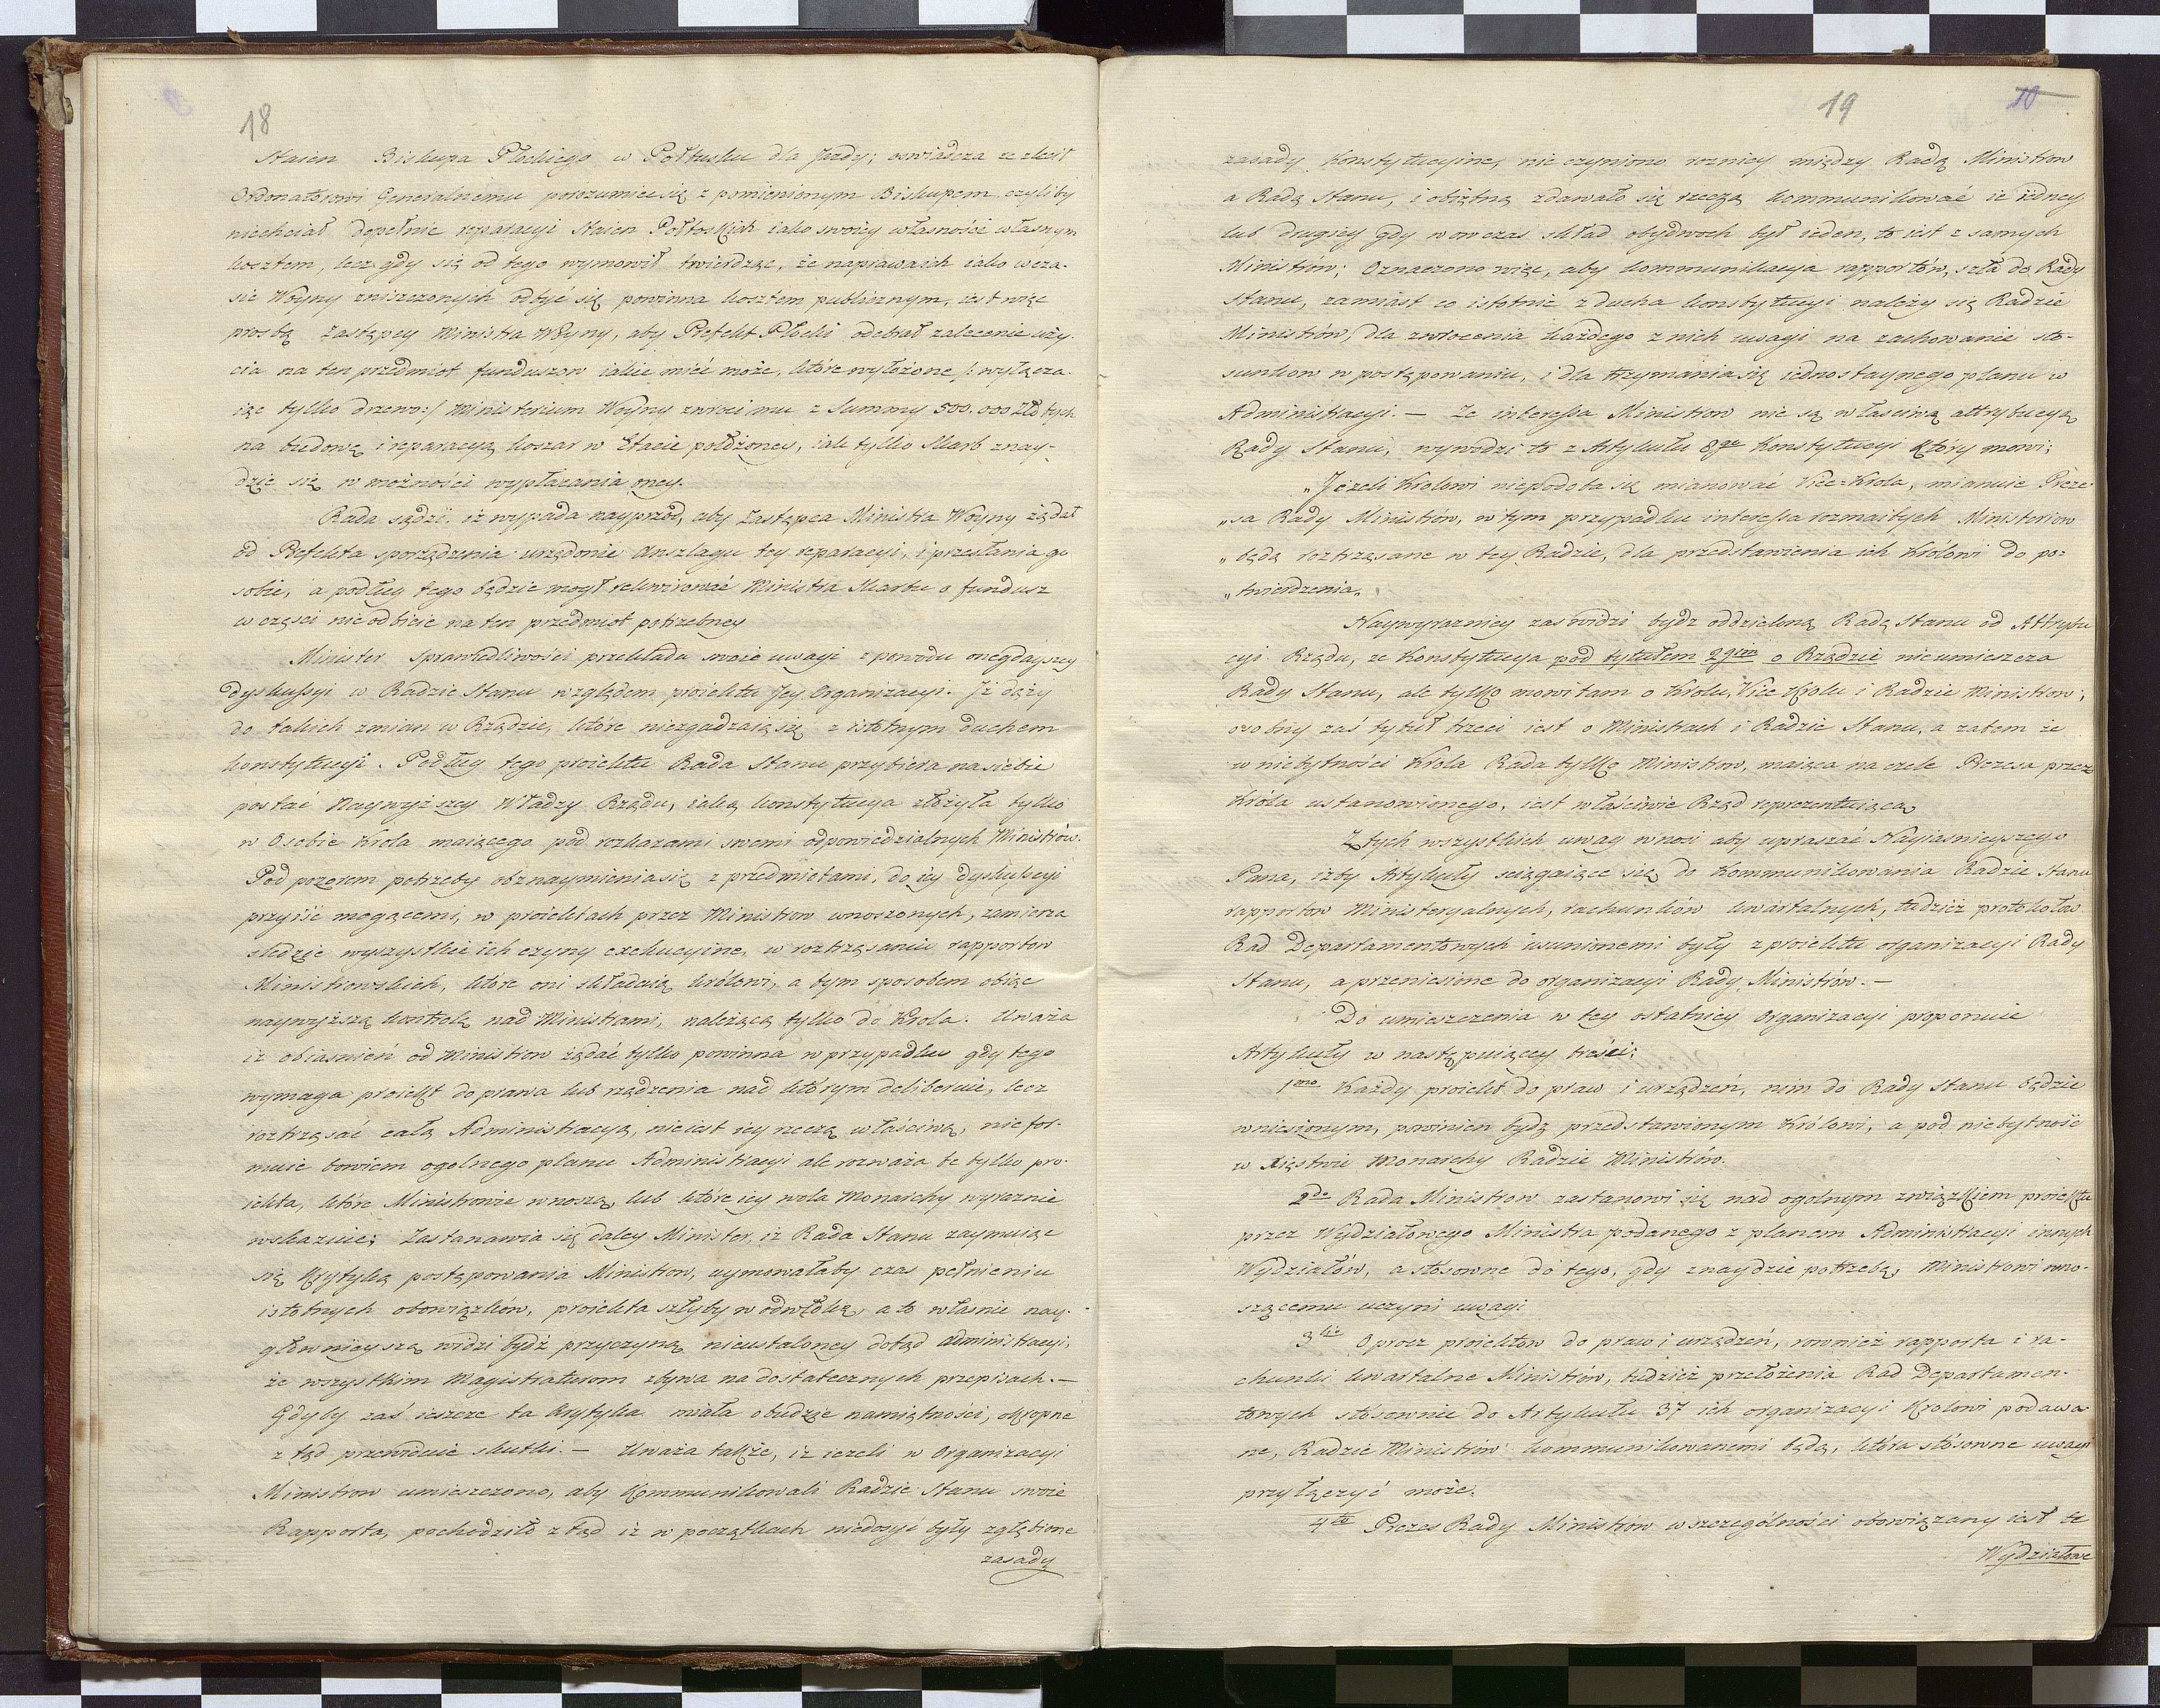 18
Staien Biskupa Płockiego w Połtusku dla Jazdy; oswiadcza ze zlecił
Ordonatorowi Generalnemu porozumiec się z pomienionym Biskupem czyliby
niechciał dopełnic reparacyi Staien Połtoskich iako swoiey własności własnym
kosztem, lecz gdy się od tego wymowił twierdząc, że naprawa ich iako w cza-
sie Woyny zniszczonych odbyć się powinna kosztem publicznym, iest więc
prosbą Zastępcy Ministra Woyny, aby Prefekt Płocki odebrał zalecenie uży-
cia na ten przedmiot funduszow iakie mieć może, które wyłożone /: wyłącza-
iąc tylko drzewo :/ Ministerium Woyny zwroci mu z Summy 500.000 Złotych
na budowę i reparacyą koszar w Etacie położoney, iak tylko Skarb znay-
dzie się w możności wypłacania oney.
Rada sądzi: iż wypada nayprzod, aby Zastępca Ministra Woyny żądał
od Prefekta sporządzenia urzędownie Anszlagu tey reparacyi, i przesłania go
sobie, a podług tego będzie mogł rekwirować Ministra Skarbu o fundusz
w części nie odbicie na ten przedmiot potrzebney
Minister Sprawiedliwości przekłada swoie uwagi z powodu onegdayszey
dyskussyi w Radzie Stanu względem proiektu Jey Organizacyi. Jż dąży
do takich zmian w Rządzie, które niezgadzaią się z istotnym duchem
konstytucyi. Podług tego proiektu Rada Stanu przybiera na siebie
postać Naywyższey Władzy Rządu, iaką konstytucya złożyła tylko
w Osobie Krola maiącego pod rozkazami swemi odpowiedzialnych Ministrów.
Pod pozorem potrzeby obznaymienia się z przedmiotami, do iey dyskussyi
przyiść mogącemi, w proiektach przez Ministrow wnoszonych, zamierza
sledzic wszystkie ich czyny exekucyine, w roztrząsaniu rapportów
Ministrowskich, które oni składaią królowi, a tym sposobem obiąc
naywyższą kontrolę nad Ministrami, należącą tylko do Krola. Uważa
iż obiasnień od Ministrow żądać tylko powinna w przypadku gdy tego
wymaga proiekt do prawa lub rządzenia nad którym deliberuie, lecz
roztrząsać całą Administracyą, nie iest iey rzeczą właściwą, nie for-
muie bowiem ogolnego planu Administracyi ale rozważa te tylko pro-
iekta, które Ministrowie wnoszą, lub które iey wola Monarchy wyraznie
wskazuie; Zastanawia się daley Minister, iż Rada Stanu zaymuiąc
się krytyką postępowania Ministrow, uymowałaby czas pełnieniu
istotnych obowiązków, proiekta szłyby w odwłokę, a to własnie nay-
głównieyszą widzi bydź przyczyną nieustaloney dotąd administracyi,
że wszystkim Magistraturom zbywa na dostatecznych przepisach. —
Gdyby zaś ieszcze ta krytyka miała obudzic namiętności, okropne
z tąd przewiduie skutki. — Uważa także, iż ieżeli w Organizacyi
Ministrow umieszczono, aby kommunikowali Radzie Stanu swoie
Rapporta, pochodziło z tąd iż w początkach niedosyć były zgłębione
zasady
19
10
zasady konstytucyine, nie czyniono roznicy między Radą Ministrow
a Radą Stanu, i obiętną zdawało się rzeczą kommunikować ie iedney
lub drugiey gdy wowczas skład obydwoch był ieden, to iest z samych
Ministrów; Oznaczono więc, aby kommunikacya rapportów, szła do Rady
Stanu, zamiast co istotnie z ducha konstytucyi należy się Radzie
Ministrów, dla zwrocenia każdego z nich uwagi na zachowanie sto-
sunkow w postępowaniu, i dla trzymania się iednostaynego planu w
Administracyi. — Że interessa Ministrow nie są właściwą attrybucyą
Rady Stanu, wywodzi to z Artykułu 8go Konstytucyi który mowi;
„Jeżeli Krolowi niepodoba się mianować Vice-Krola, mianuie Preze-
„sa Rady Ministrów, w tym przypadku interessa rozmaitych Ministeriow
„będą roztrząsane w tey Radzie, dla przedstawienia ich Królowi do po-
„twierdzenia„
Naywyrazniey zas widzi bydz oddzieloną Radę Stanu od Attrybu
cyi Rządu, ze Konstytucya pod tytułem 2gim o Rządzie nieumieszcza
Rady Stanu, ale tylko mowi tam o Krolu, Vice Krolu i Radzie Ministrow;
osobny zaś tytuł trzeci iest o Ministrach i Radzie Stanu, a zatem że
w niebytności Krola Rada tylko Ministrow, maiąca na czele Prezesa przez
Króla ustanowionego, iest właściwie Rząd reprezentuiącą,
Z tych wszystkich uwag wnosi aby upraszać Nayiasnieyszego
Pana, iżby Artykuły sciągaiące się do Kommunikowania Radzie Stanu
rapportow Ministeryalnych, rachunków kwartalnych, tudzież protokołow
Rad Departamentowych usunionemi były z proiektu organizacyi Rady
Stanu, a przeniesione do organizacyi Rady Ministrów. —
Do umieszczenia w tey ostatniey Organizacyi proponuie
Artykuły w następuiącey treści;
1mo Każdy proiekt do praw i urządzeń, nim do Rady Stanu będzie
wniesionym, powinien bydz przedstawionym Królowi, a pod niebytność
w Xięstwie Monarchy Radzie Ministrów.
2do Rada Ministrow zastanowi się nad ogolnym związkiem proiektu
przez Wydziałowego Ministra podanego z planem Administracyi innych
Wydziałów, a stosowne do tego, gdy znaydzie potrzebę, Ministrowi wno-
szącemu uczyni uwagi
3tio Oprocz proiektow do praw i urządzeń, rownież rapporta i ra-
chunki kwartalne Ministrów, tudzież przełożenia Rad Departamen-
towych stosownie do Artykułu 37 ich organizacyi Krolowi podawa
ne, Radzie Ministrów kommunikowanemi będą, która stosowne uwagi
przyłączyć może.
4to Prezes Rady Ministrów w szczególności obowiązany iest te
Wydziałowe